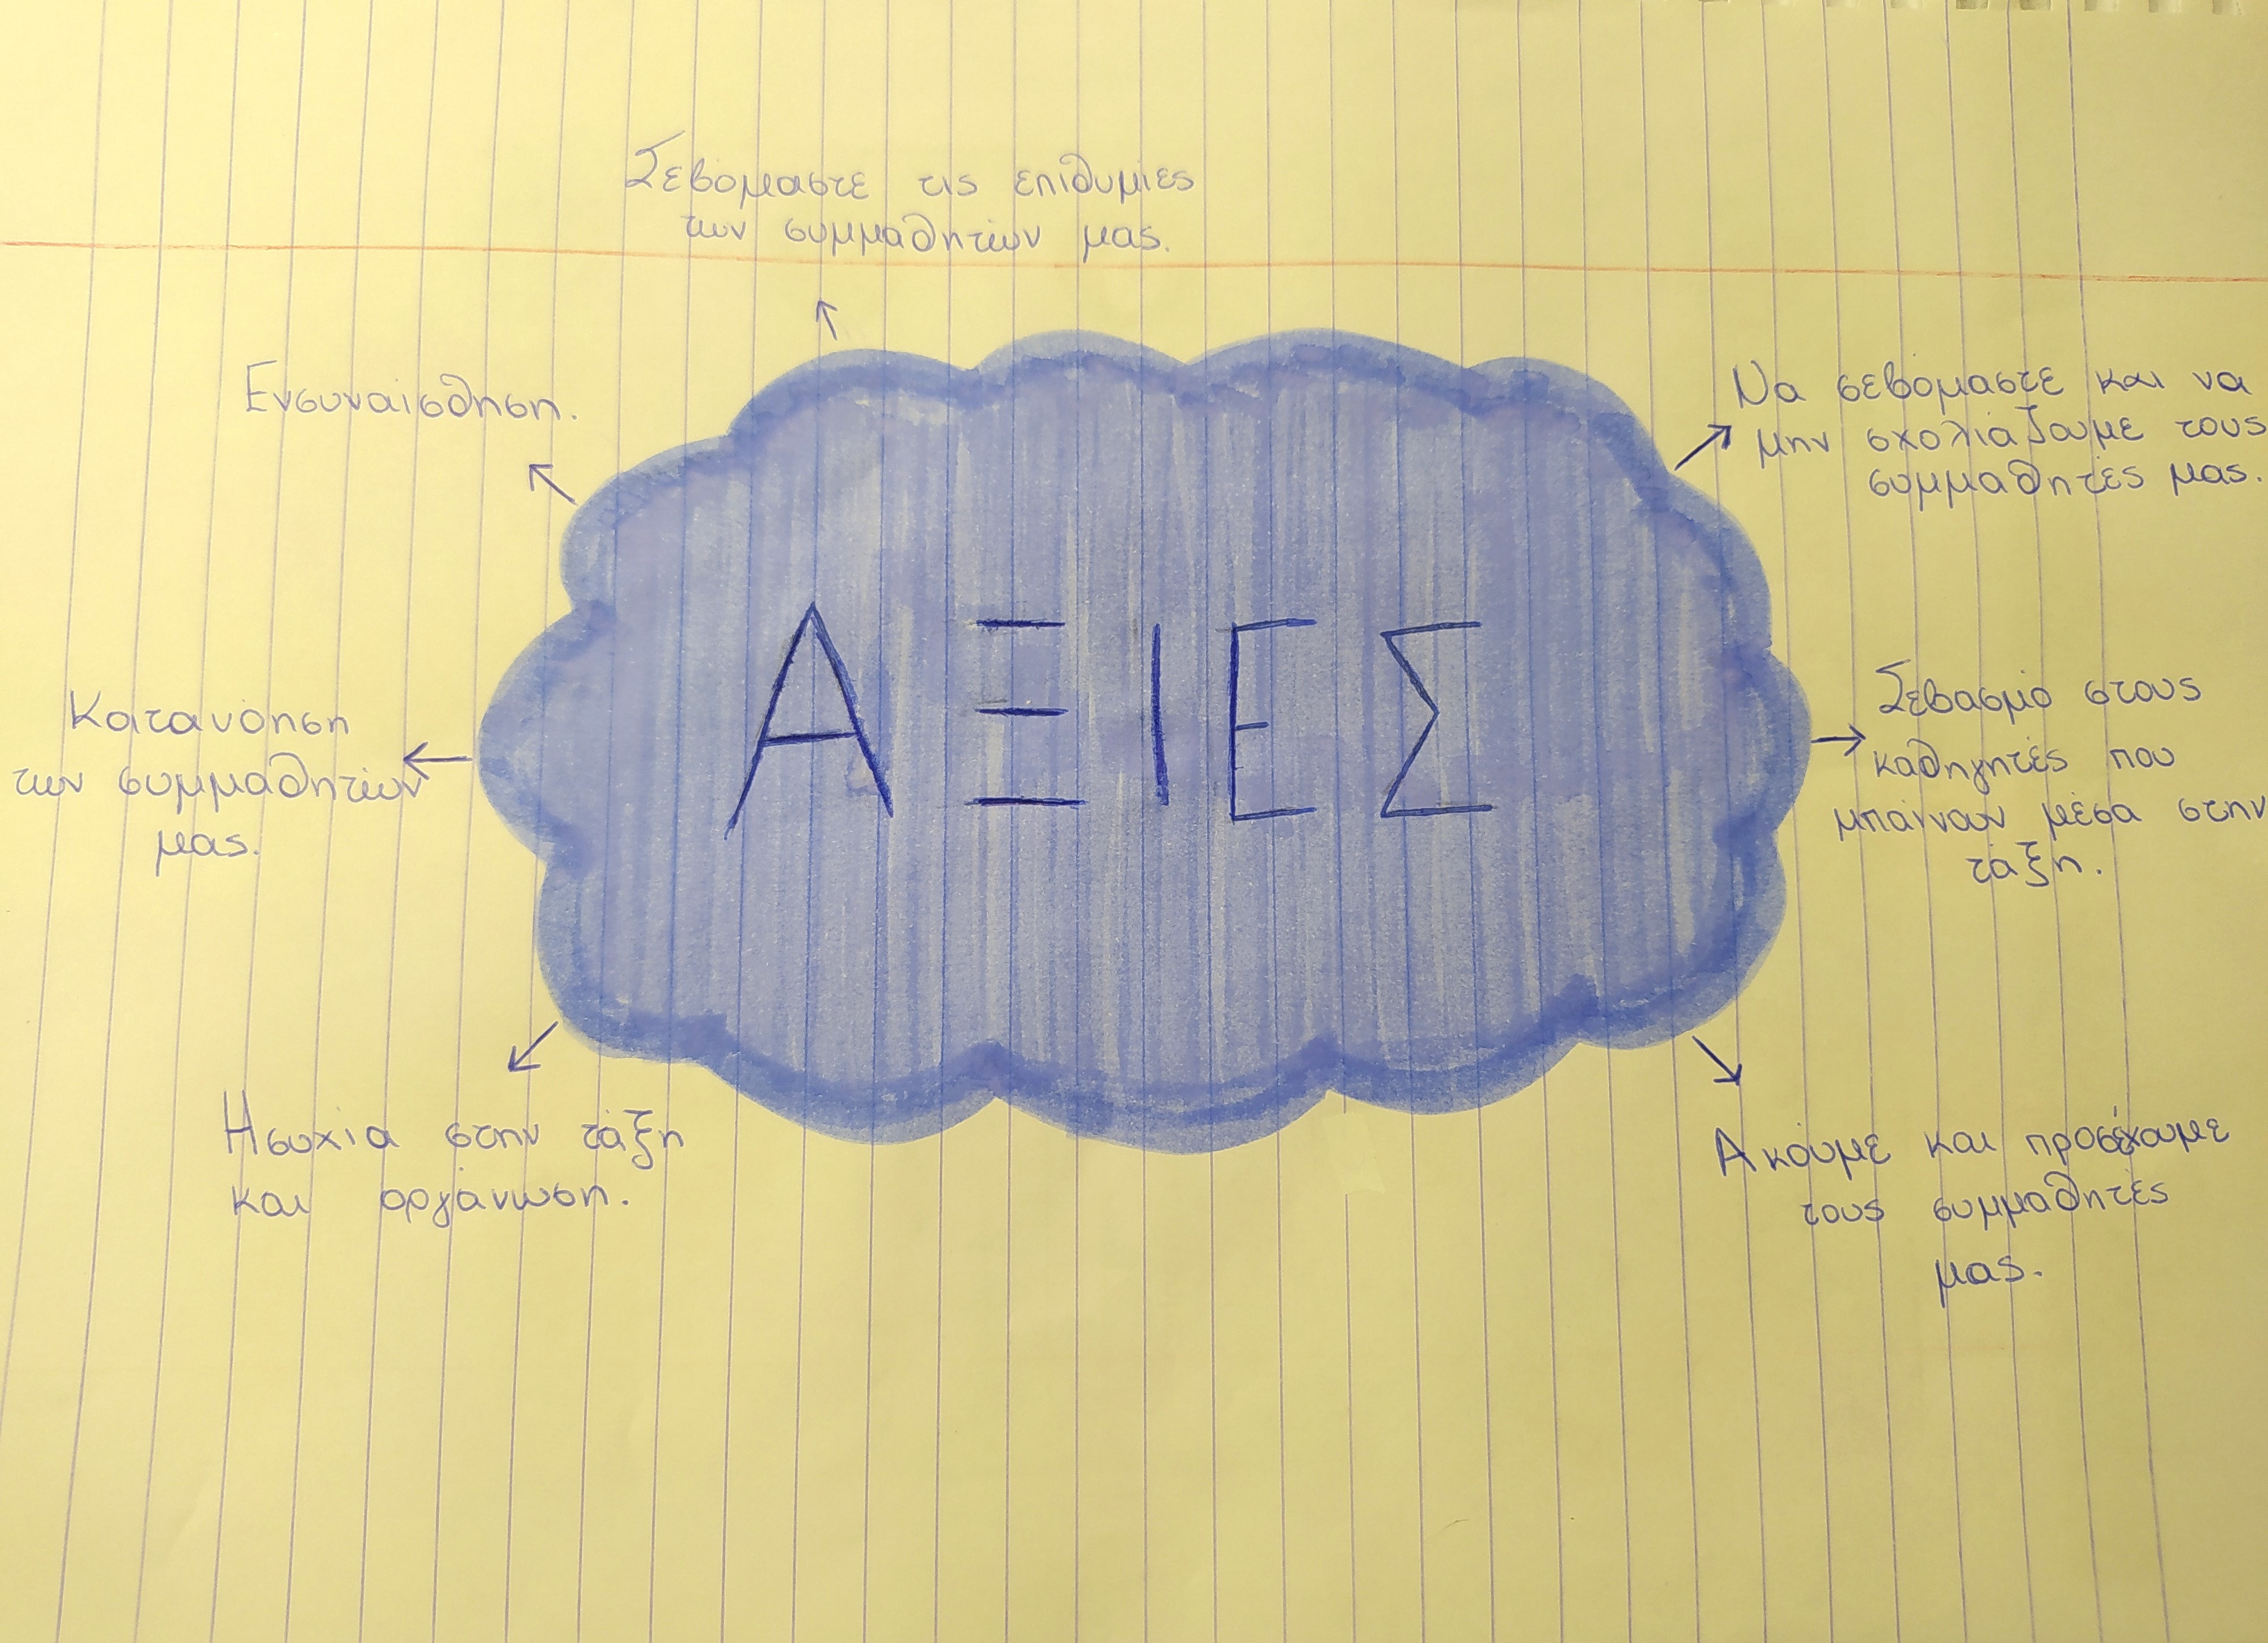 Σεβόμαστε τις επιθυμίες
των συμμαθητών μας.
Ενσυναίσθηση.
Να σεβόμαστε και να
μην σχολιάζουμε τους
συμμαθητές μας.
ΑΞΙΕΣ
Κατανόηση
των συμμαθητών
μας.
Σεβασμό στους
καθηγητές που
μπαίνουν μέσα στην
τάξη.
Ησυχία στην τάξη
και οργάνωση.
Ακούμε και προσέχουμε
τους συμμαθητές
μας.